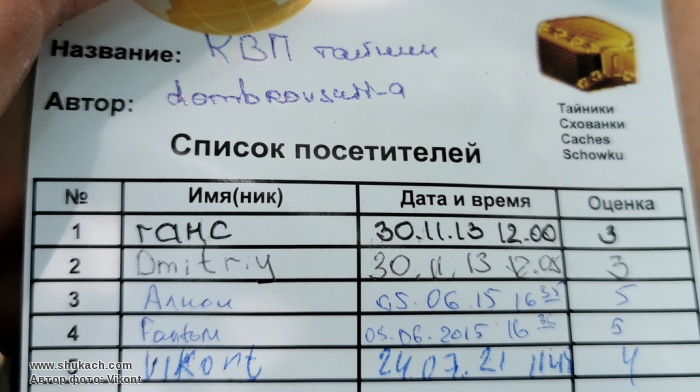 Название: КВП тайник
Автор: dombrovskii-a
Тайники
Схованки
Caches
Schowku
Список посетителей
№ Имя(ник) Дата и время Оценка
1 ганс 30.11.13 12.00 3
2 Dmitriy 30.11.13 12.05 3
3 05.06.15 16 35 5
4 Fantom 05.06.2015 16 35 5
5 Vikont 24.07.21 4
www.shukach.com
Автор фото: Vikont